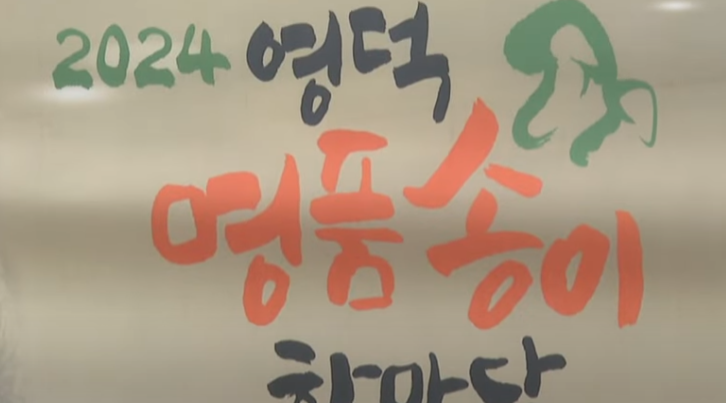 2024 영덕
명품송이
한마당